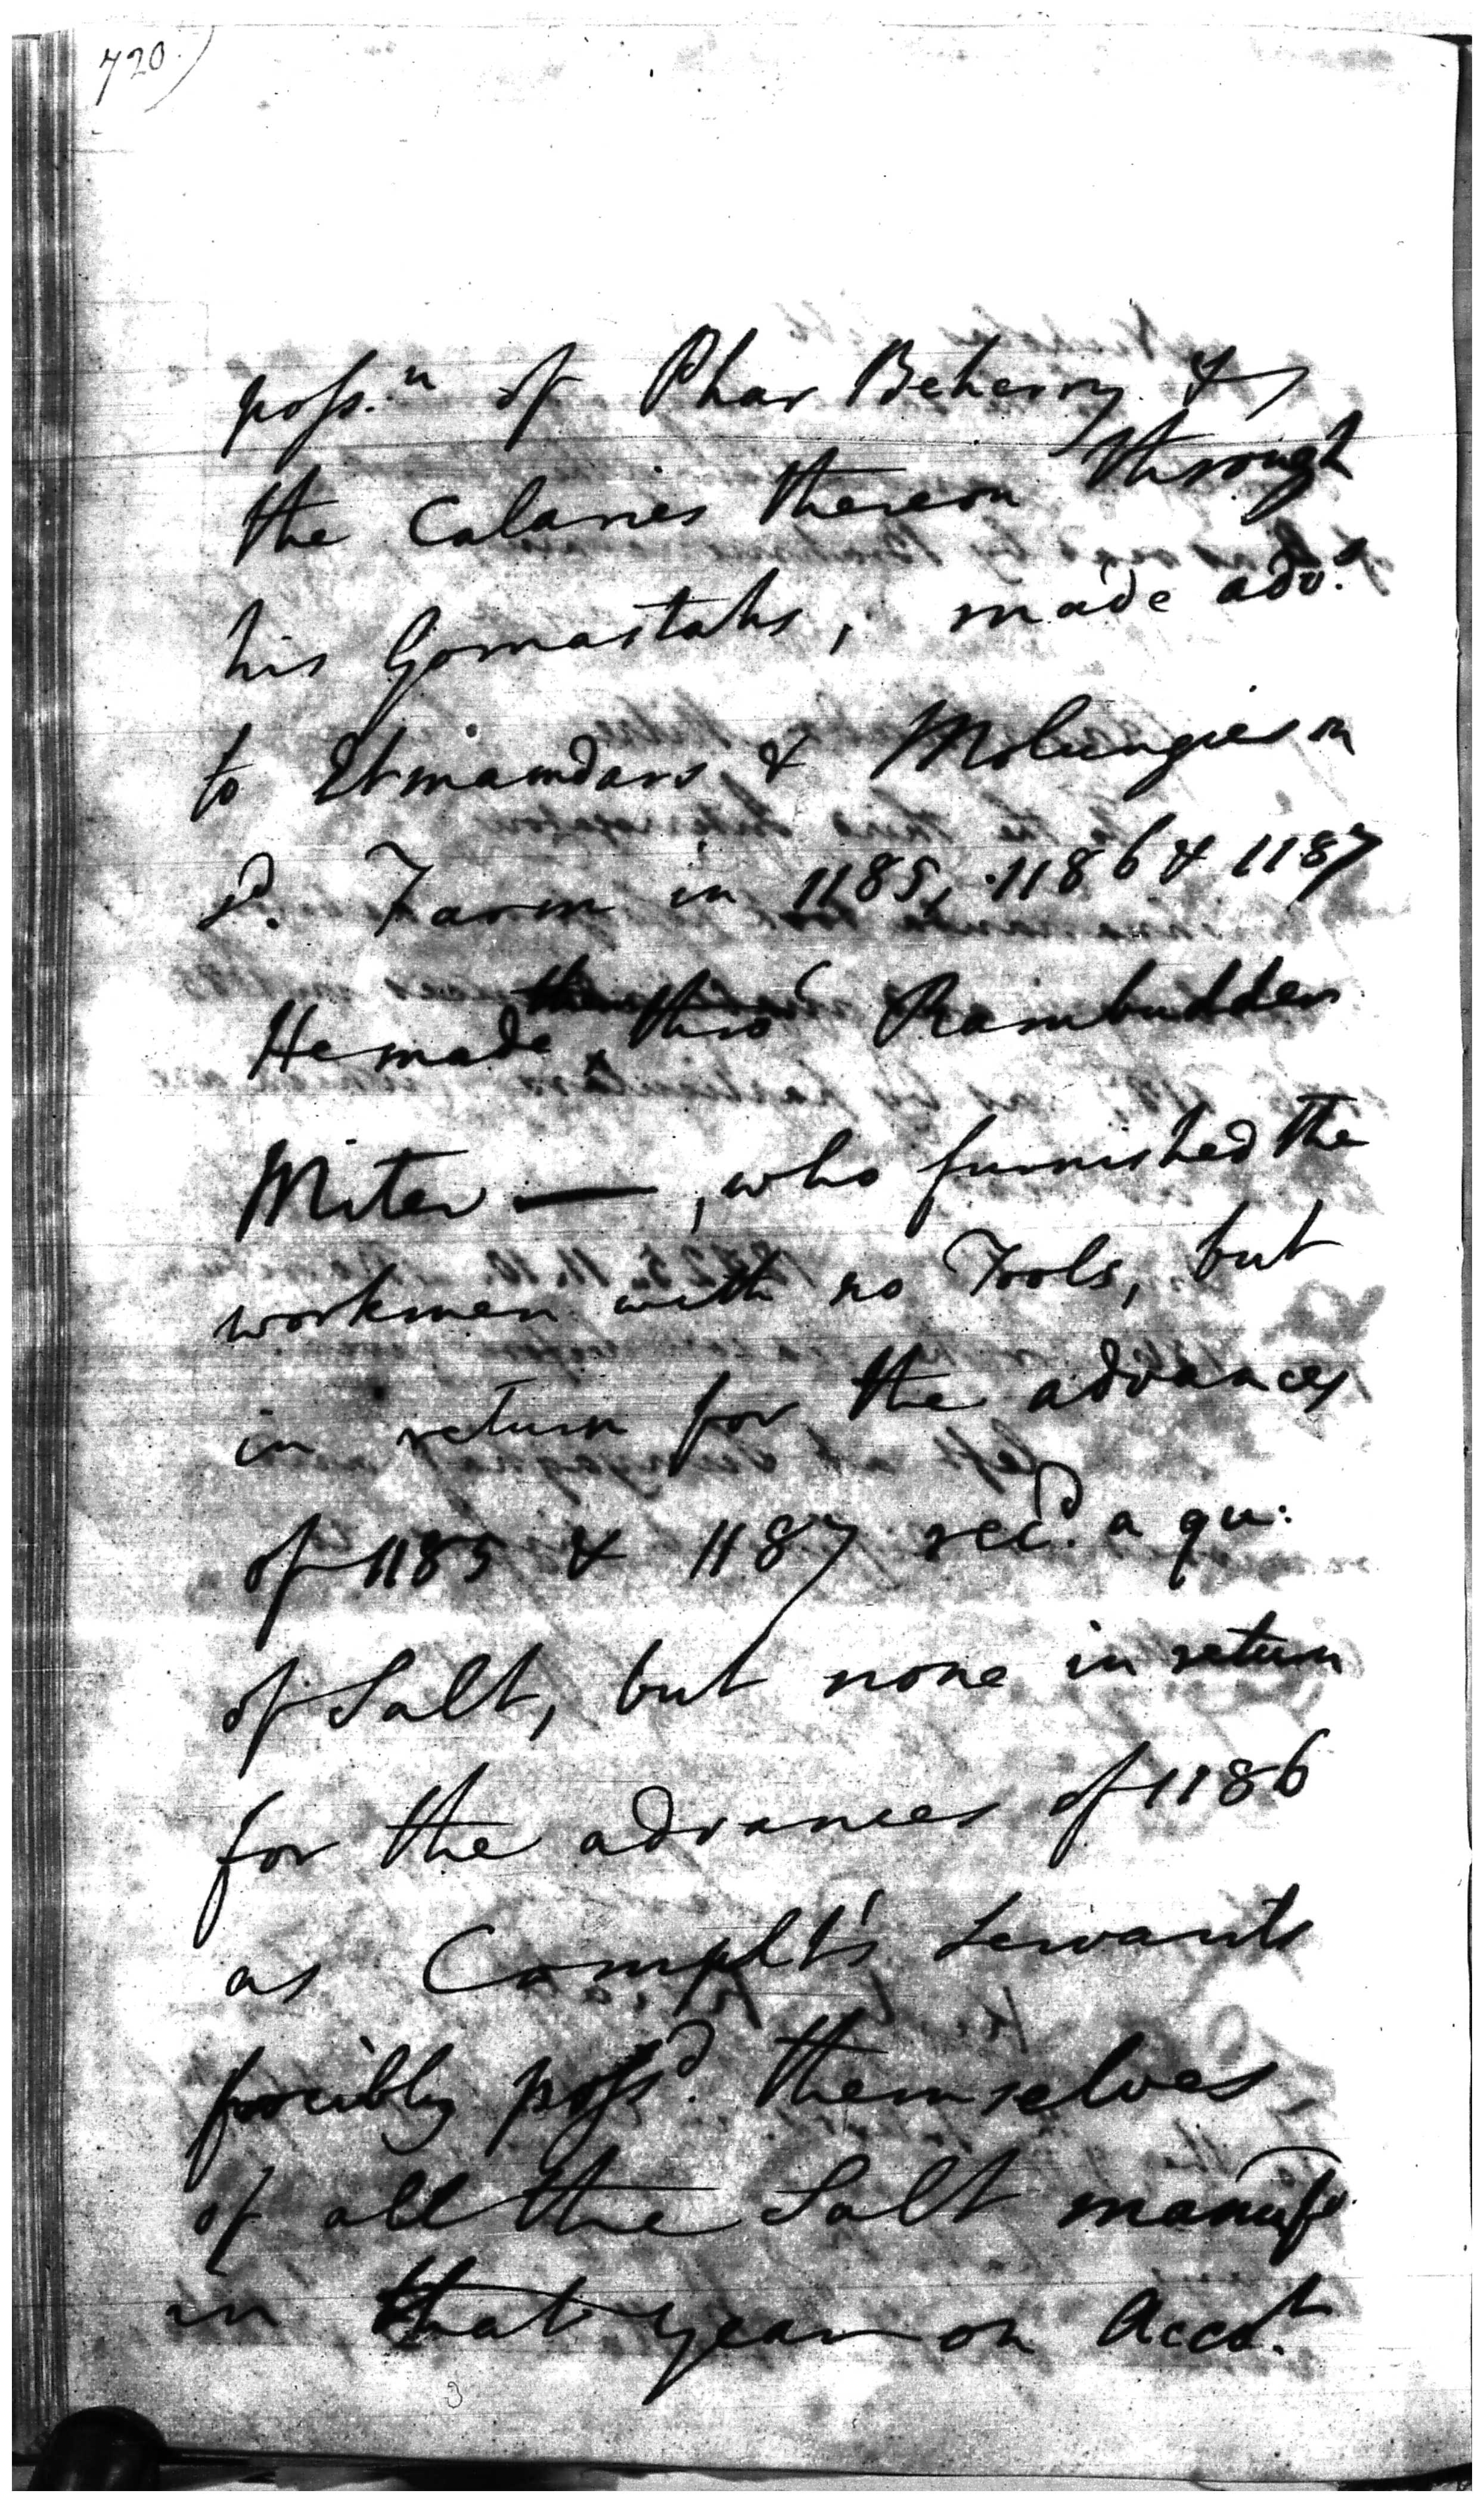 720)
poss.n of Phar Beherry &
the Calaries thereon through
his Gomastahs, made adv.s
to Etmamdars & Molungies in
sd. Farm in 1185, 1186 & 1187
He made thro' Rambudder
Miter —, who furnished the
workmen with no Tools, but
in return for the advances
of 1185 & 1187 recd. a qu:
of Salt, but none in return
for the advances of 1186
as Complt's Servants
forcibly possd. themselves
of all the Salt manufd.
in that year on Acct.